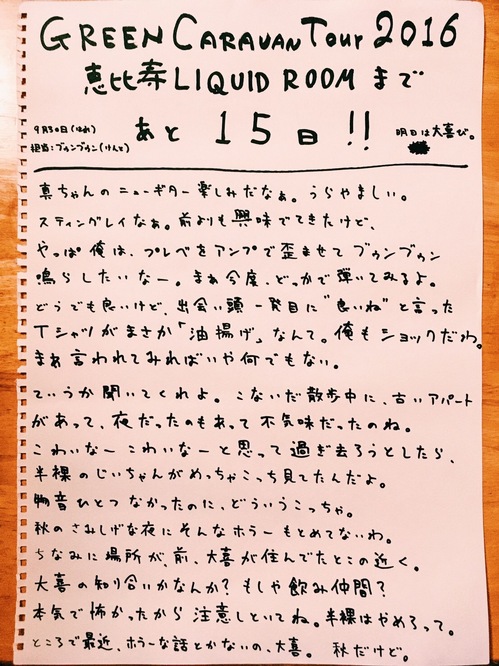 GREEN CARAVAN Tour 2016
恵比寿 LIQUID ROOM まで
9月30日(はれ)
担当:ブゥンブゥン(けんと)
あと 15日!!
明日は大喜び。
真ちゃんのニューギター楽しみだなぁ。うらやましい。
スティングレイなぁ。前よりも興味でてきたけど、
やっぱ俺は、プレベをアンプで歪ませてブゥンブゥン
鳴らしたいなー。まぁ今度、どっかで弾いてみるよ。
どうでも良いけど、出会い頭一発目に"良いね"と言った
Tシャツがまさか「油揚げ」なんて。俺もショックだわ。
まぁ言われてみればいや何でもない。
ていうか聞いてくれよ。こないだ散歩中に、古いアパート
があって、夜だったのもあって不気味だったのね。
こわいなーこわいなーと思って過ぎ去ろうとしたら、
半裸のじいちゃんがめっちゃこっち見てたんだよ。
物音ひとつなかったのに、どういうこっちゃ。
秋のさみしげな夜にそんなホラーもとめてないわ。
ちなみに場所が、前、大喜が住んでたとこの近く。
大喜の知り合いかなんか?もしや飲み仲間?
本気で怖かったから注意しといてね。半裸はやめろって。
ところで最近、ホラーな話とかないの、大喜。 秋だけど。